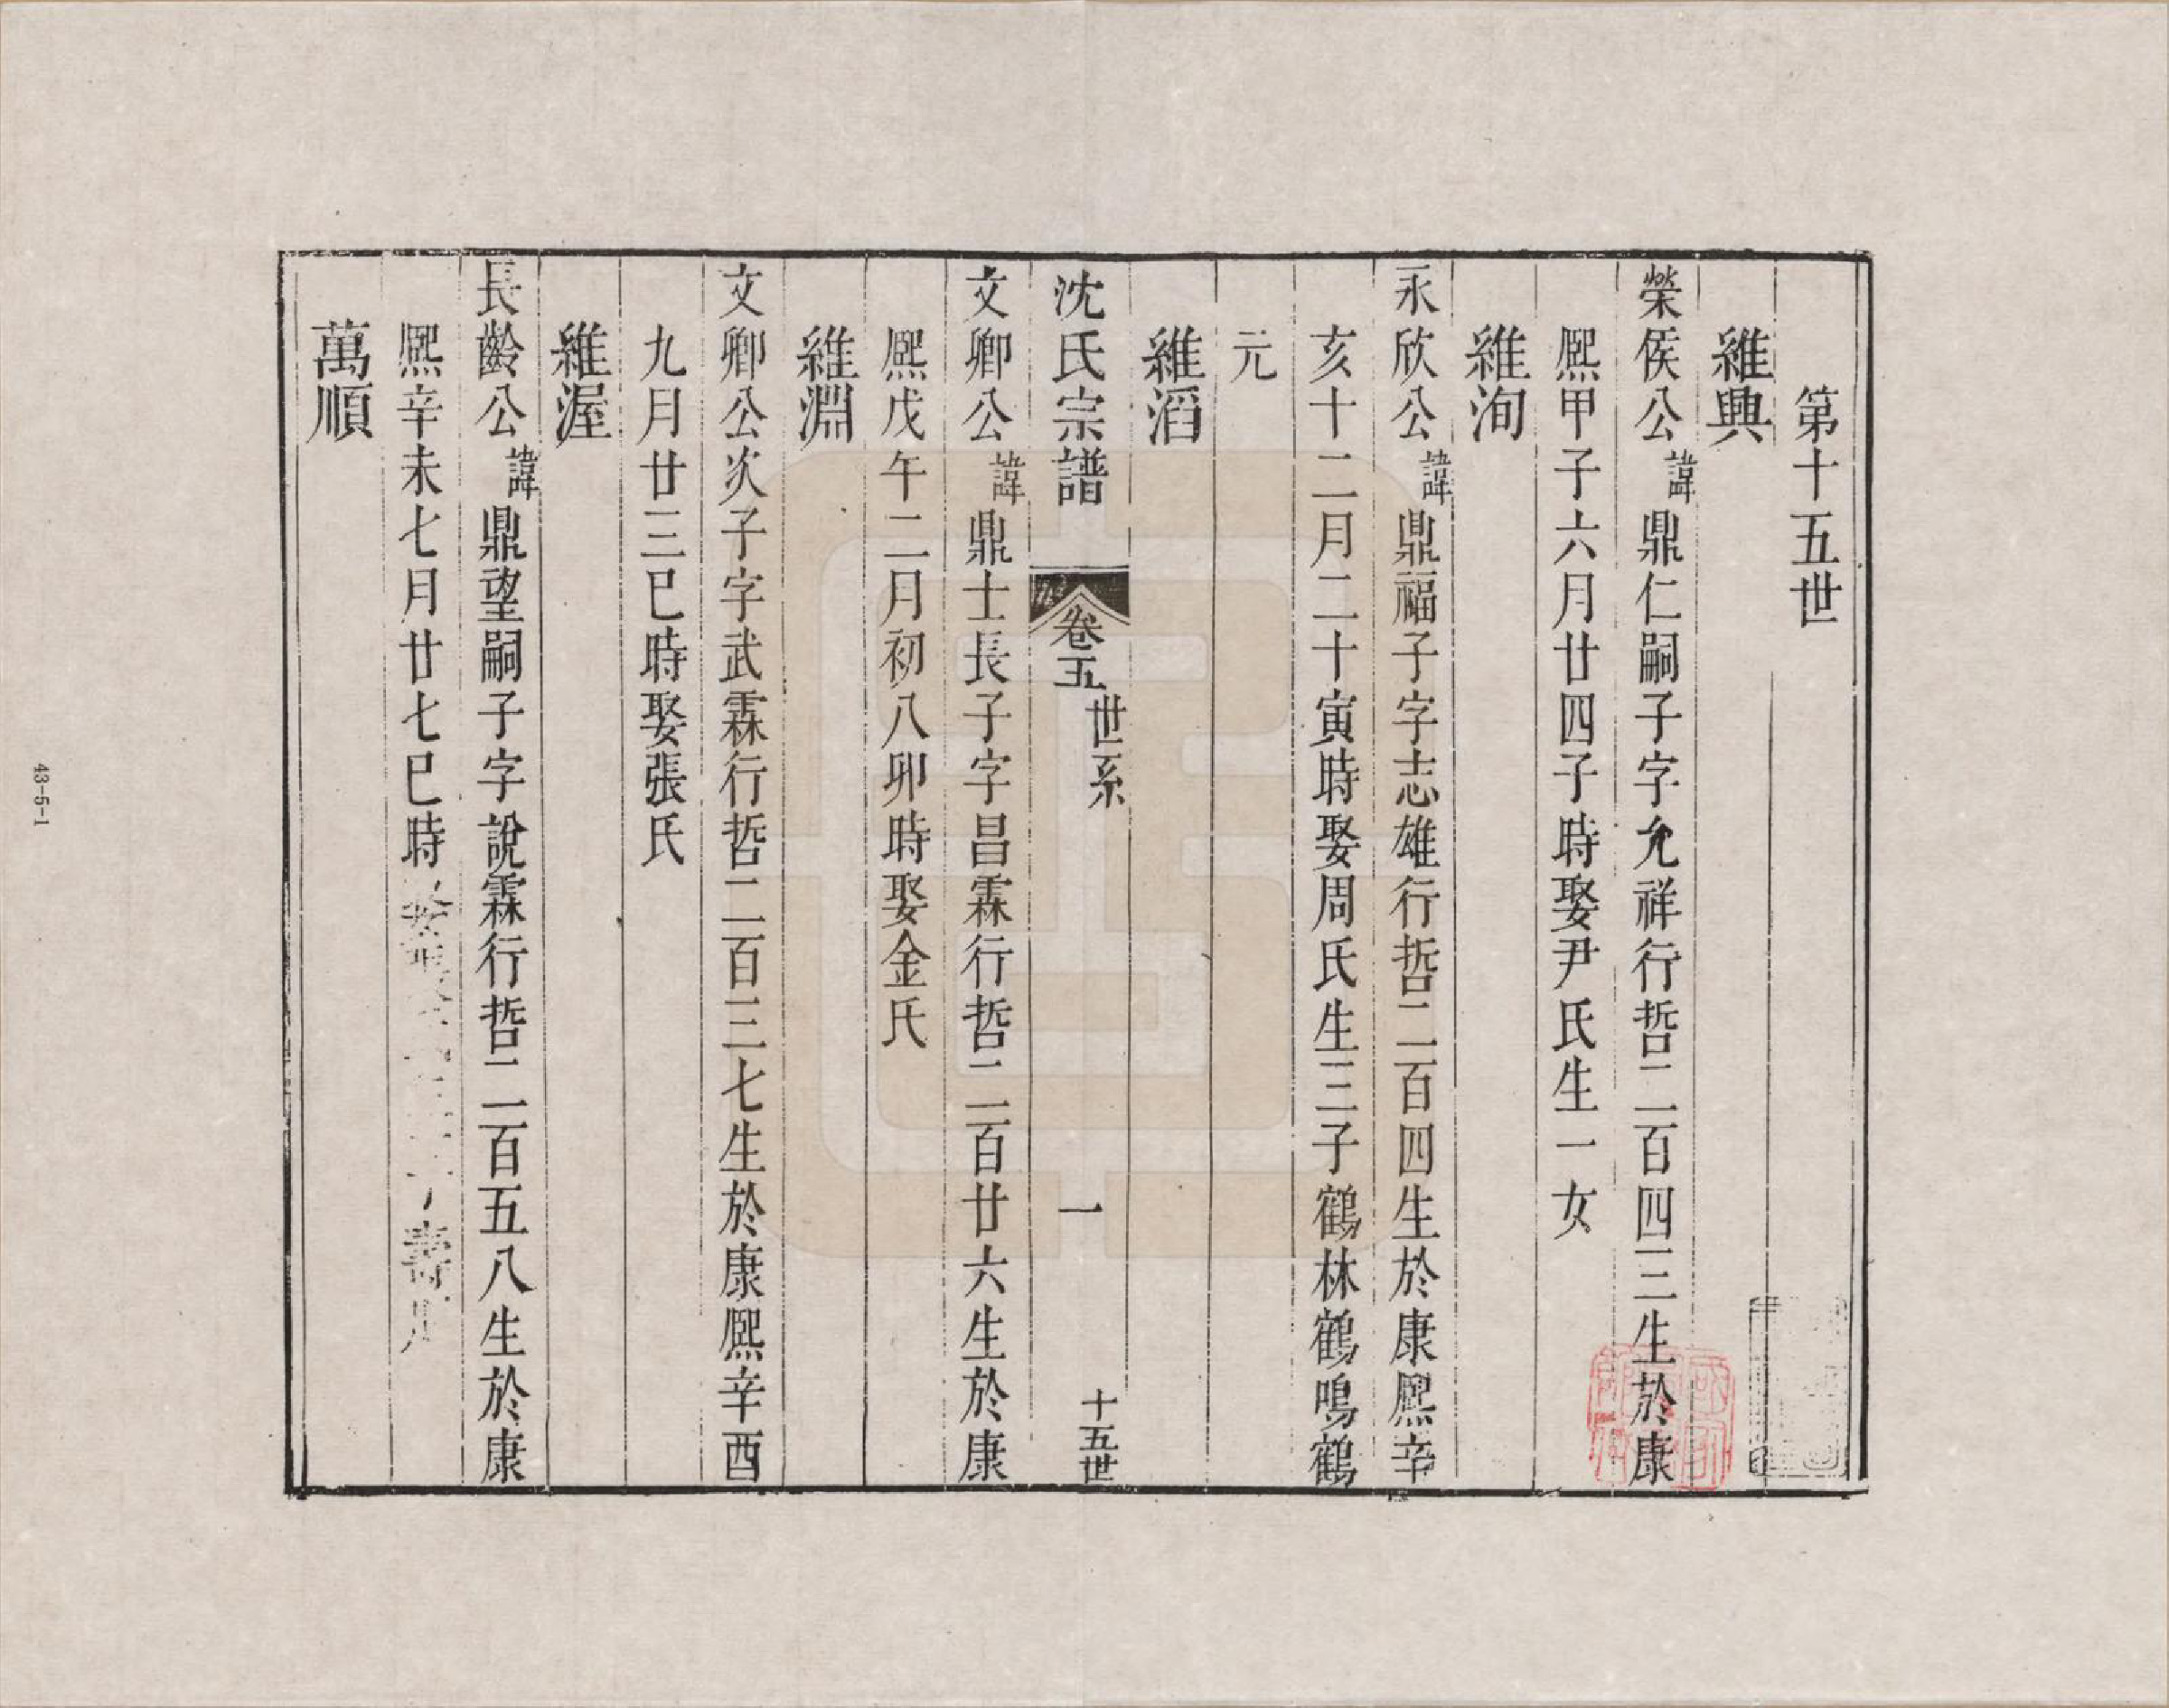 第十五世
維興
榮侯公諱鼎仁嗣子字允祥行哲二百四三生於康
熙甲子六月廿四子時娶尹氏生一女
維洵
永欣公諱鼎福子字志雄行哲二百四生於康熙辛
亥十二月二十寅時娶周氏生三子鶴林鶴鳴鶴
元
維滔
沈氏宗譜
卷五
世系
一
十五世
文卿公諱鼎士長子字昌霖行哲二百廿六生於康
熙戊午二月初八卯時娶金氏
維淵
文卿公次子字武霖行哲二百三七生於康熙辛酉
九月廿三巳時娶張氏
維渥
長齡公諱鼎望嗣子字說霖行哲二百五八生於康
熙辛未七月廿七巳時
萬順
43-5-1